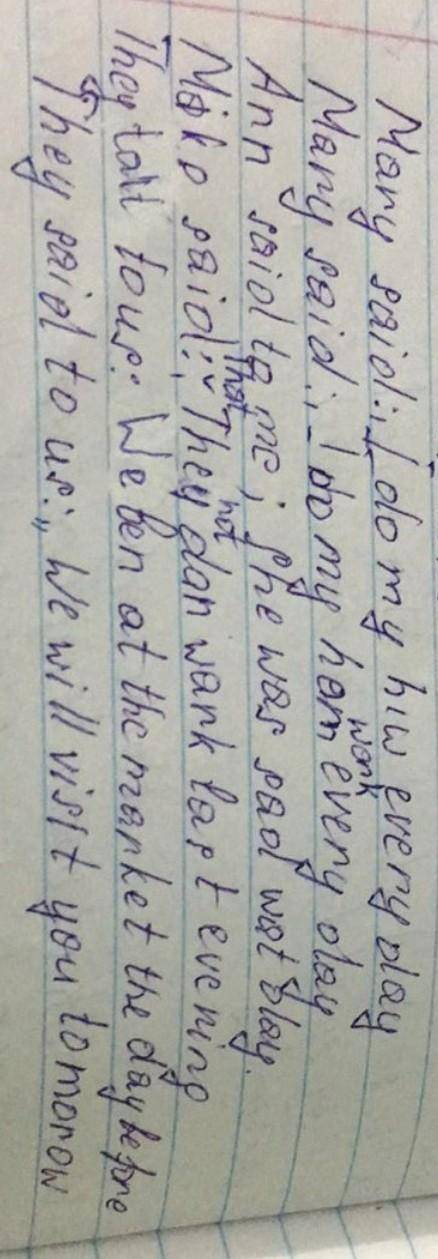 Mary said: „I do my hw every day
Mary said: „I do my hom work every day
Ann said to me, that she was sad wat day.
Mike said: "They dan not wark last evening
They told to us: We ben at the market the day before
They said to us: „We will visit you tomorow